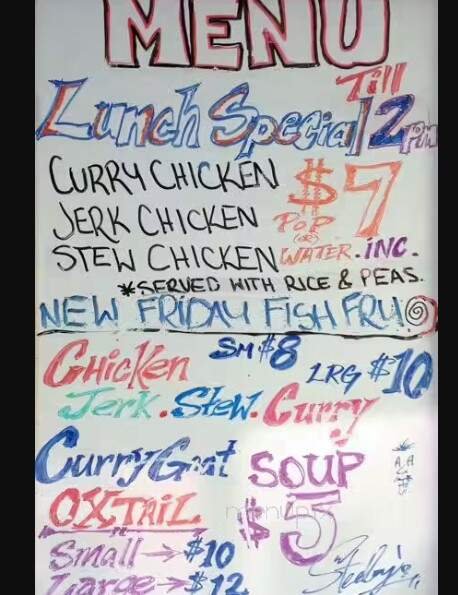 MENU
Till
Lunch Special 2 PM
CURRY CHICKEN $7
JERK CHICKEN POP
(OR)
STEW CHICKEN WATER. INC.
*SERVED WITH RICE & PEAS.
NEW FRIDAY FISH FRY
Chicken SM $8
LRG $10
Jerk. Stew. Curry
Curry Goat SOUP
OXTAIL $5
Small → $10
Large → $12